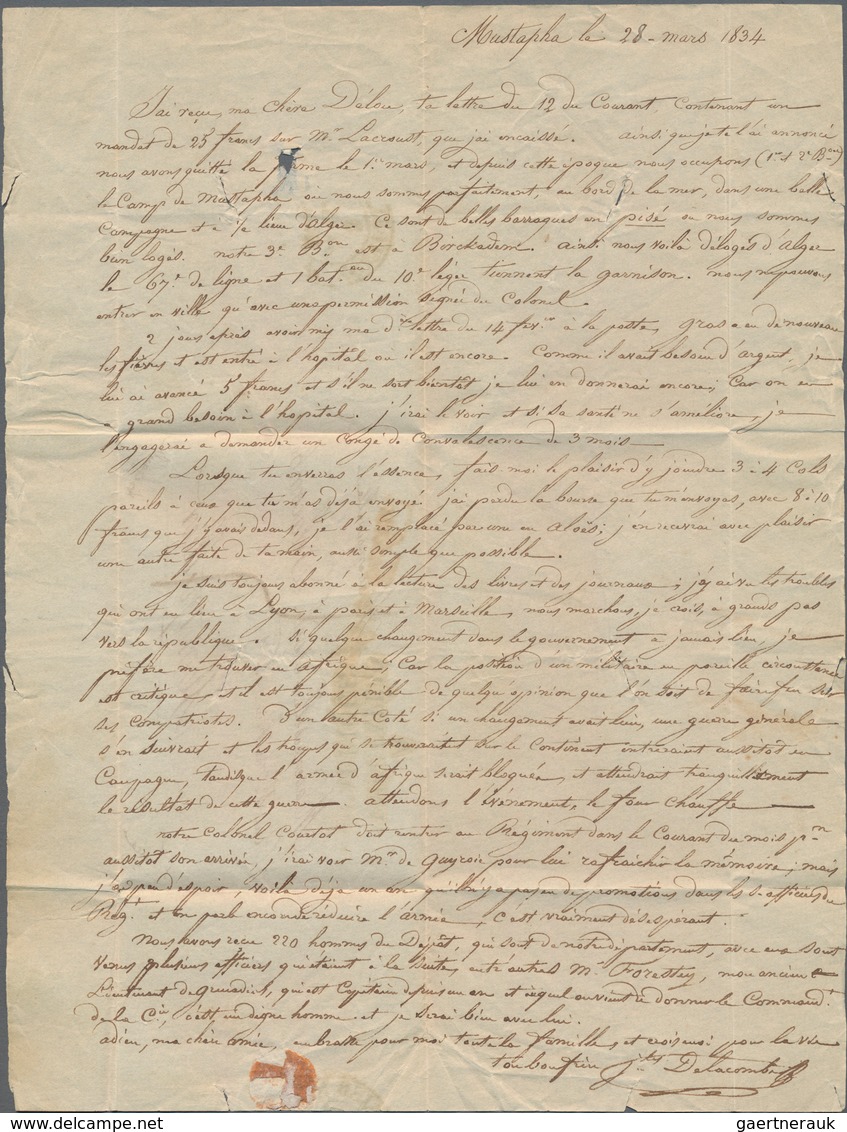 Mustapha le 28 - mars 1834
J'ai reçu, ma chère Délou, ta lettre du 12 du Courant Contenant un
mandat de 25 francs sur Mr Lacroust, que j'ai encaissé. ainsi que je te l'ai annoncé
nous avons quitté la ferme le 1er mars, et depuis cette époque nous occupons (1er et 2e Bon)
le Camp de Mustapha où nous sommes parfaitement, au bord de la mer, dans une belle
Campagne et à 1/2 lieue d'alger. Ce sont de belles barraques en pisé où nous sommes
bien logés. notre 3e Bon est à Birckadem. ainsi nous voilà délogés d'Alger
le 67e de ligne et 1 baton du 10e léger tiennent la garnison. nous ne pouvons
entrer en ville qu'avec une permission signée du Colonel.
2 jours après avoir mis ma dre lettre du 14 fevrer à la poste, Gras a eu de nouveau
les fièvres et est entré à l'hopital où il est encore. Comme il avait besoin d'argent, je
lui ai avancé 5 francs et s'il ne sort bientôt je lui en donnerai encore; Car on en
a grand besoin à l'hopital. j'irai le voir et si sa santé ne s'améliore, je
l'engagerai a demander un Congé de Convalescence de 3 mois.
Lorsque tu enverras l'essence, fais moi le plaisir d'y joindre 3 à 4 Cols
pareils à ceux que tu m'as déjà envoyé. j'ai perdu la bourse que tu m'envoyas, avec 8 à 10
francs que j'y avais dedans, je l'ai remplacé par une en Aloës; j'en recevrai avec plaisir
une autre faite de ta main, aussi simple que possible.
je suis toujours abonné à la lecture des livres et des journaux; j'y ai vu les troubles
qui ont eu lieu à Lyon, à paris et à Marseille, nous marchons, je crois, à grands pas
vers la république. si quelque changement dans le gouvernement a jamais lieu, je
préfère me trouver en afrique; Car la position d'un militaire en pareille circonstance
est critique et il est toujours pénible de quelqu'opinion que l'on soit de faire feu sur
ses Compatriotes. D'un autre Coté si un changement avait lieu, une guerre générale
s'en suivrait et les troupes qui se trouvaient sur le Continent entreraient aussitôt en
Campagne, Tandisque l'armée d'afrique serait bloquée, et attendrait tranquillement
le résultat de cette guerre. attendons l'événement, le four chauffe
notre Colonel Couetot doit rentrer au Régiment dans le Courant du mois pn
aussitôt son arrivée, j'irai voir Mr de pour lui rafraichir la mémoire; mais
j'ai peu d'espoir, voilà déja un an qu'il n'y a pas eu de promotions dans les s. officiers du
Régt et on parle encore de réduire l'armée, c'est vraiment désespérant.
Nous avons reçu 220 hommes du Dépôt, qui sont de notre département, avec eux sont
venus plusieurs officiers qui étaient à la suite, entr'autres Mr Forestier, mon ancien
Lieutenant de Grenadiers, qui est Capitaine depuis un an et à qui on vient de donner le Commandt
de la Cie, c'est un digne homme et je serai bien avec lui.
adieu, ma chère amie, embrasse pour moi toute la famille, et crois moi pour la vie
ton bon frère Jles Delacombe
gaertnerauk
delcampe.net
gaertnerauk